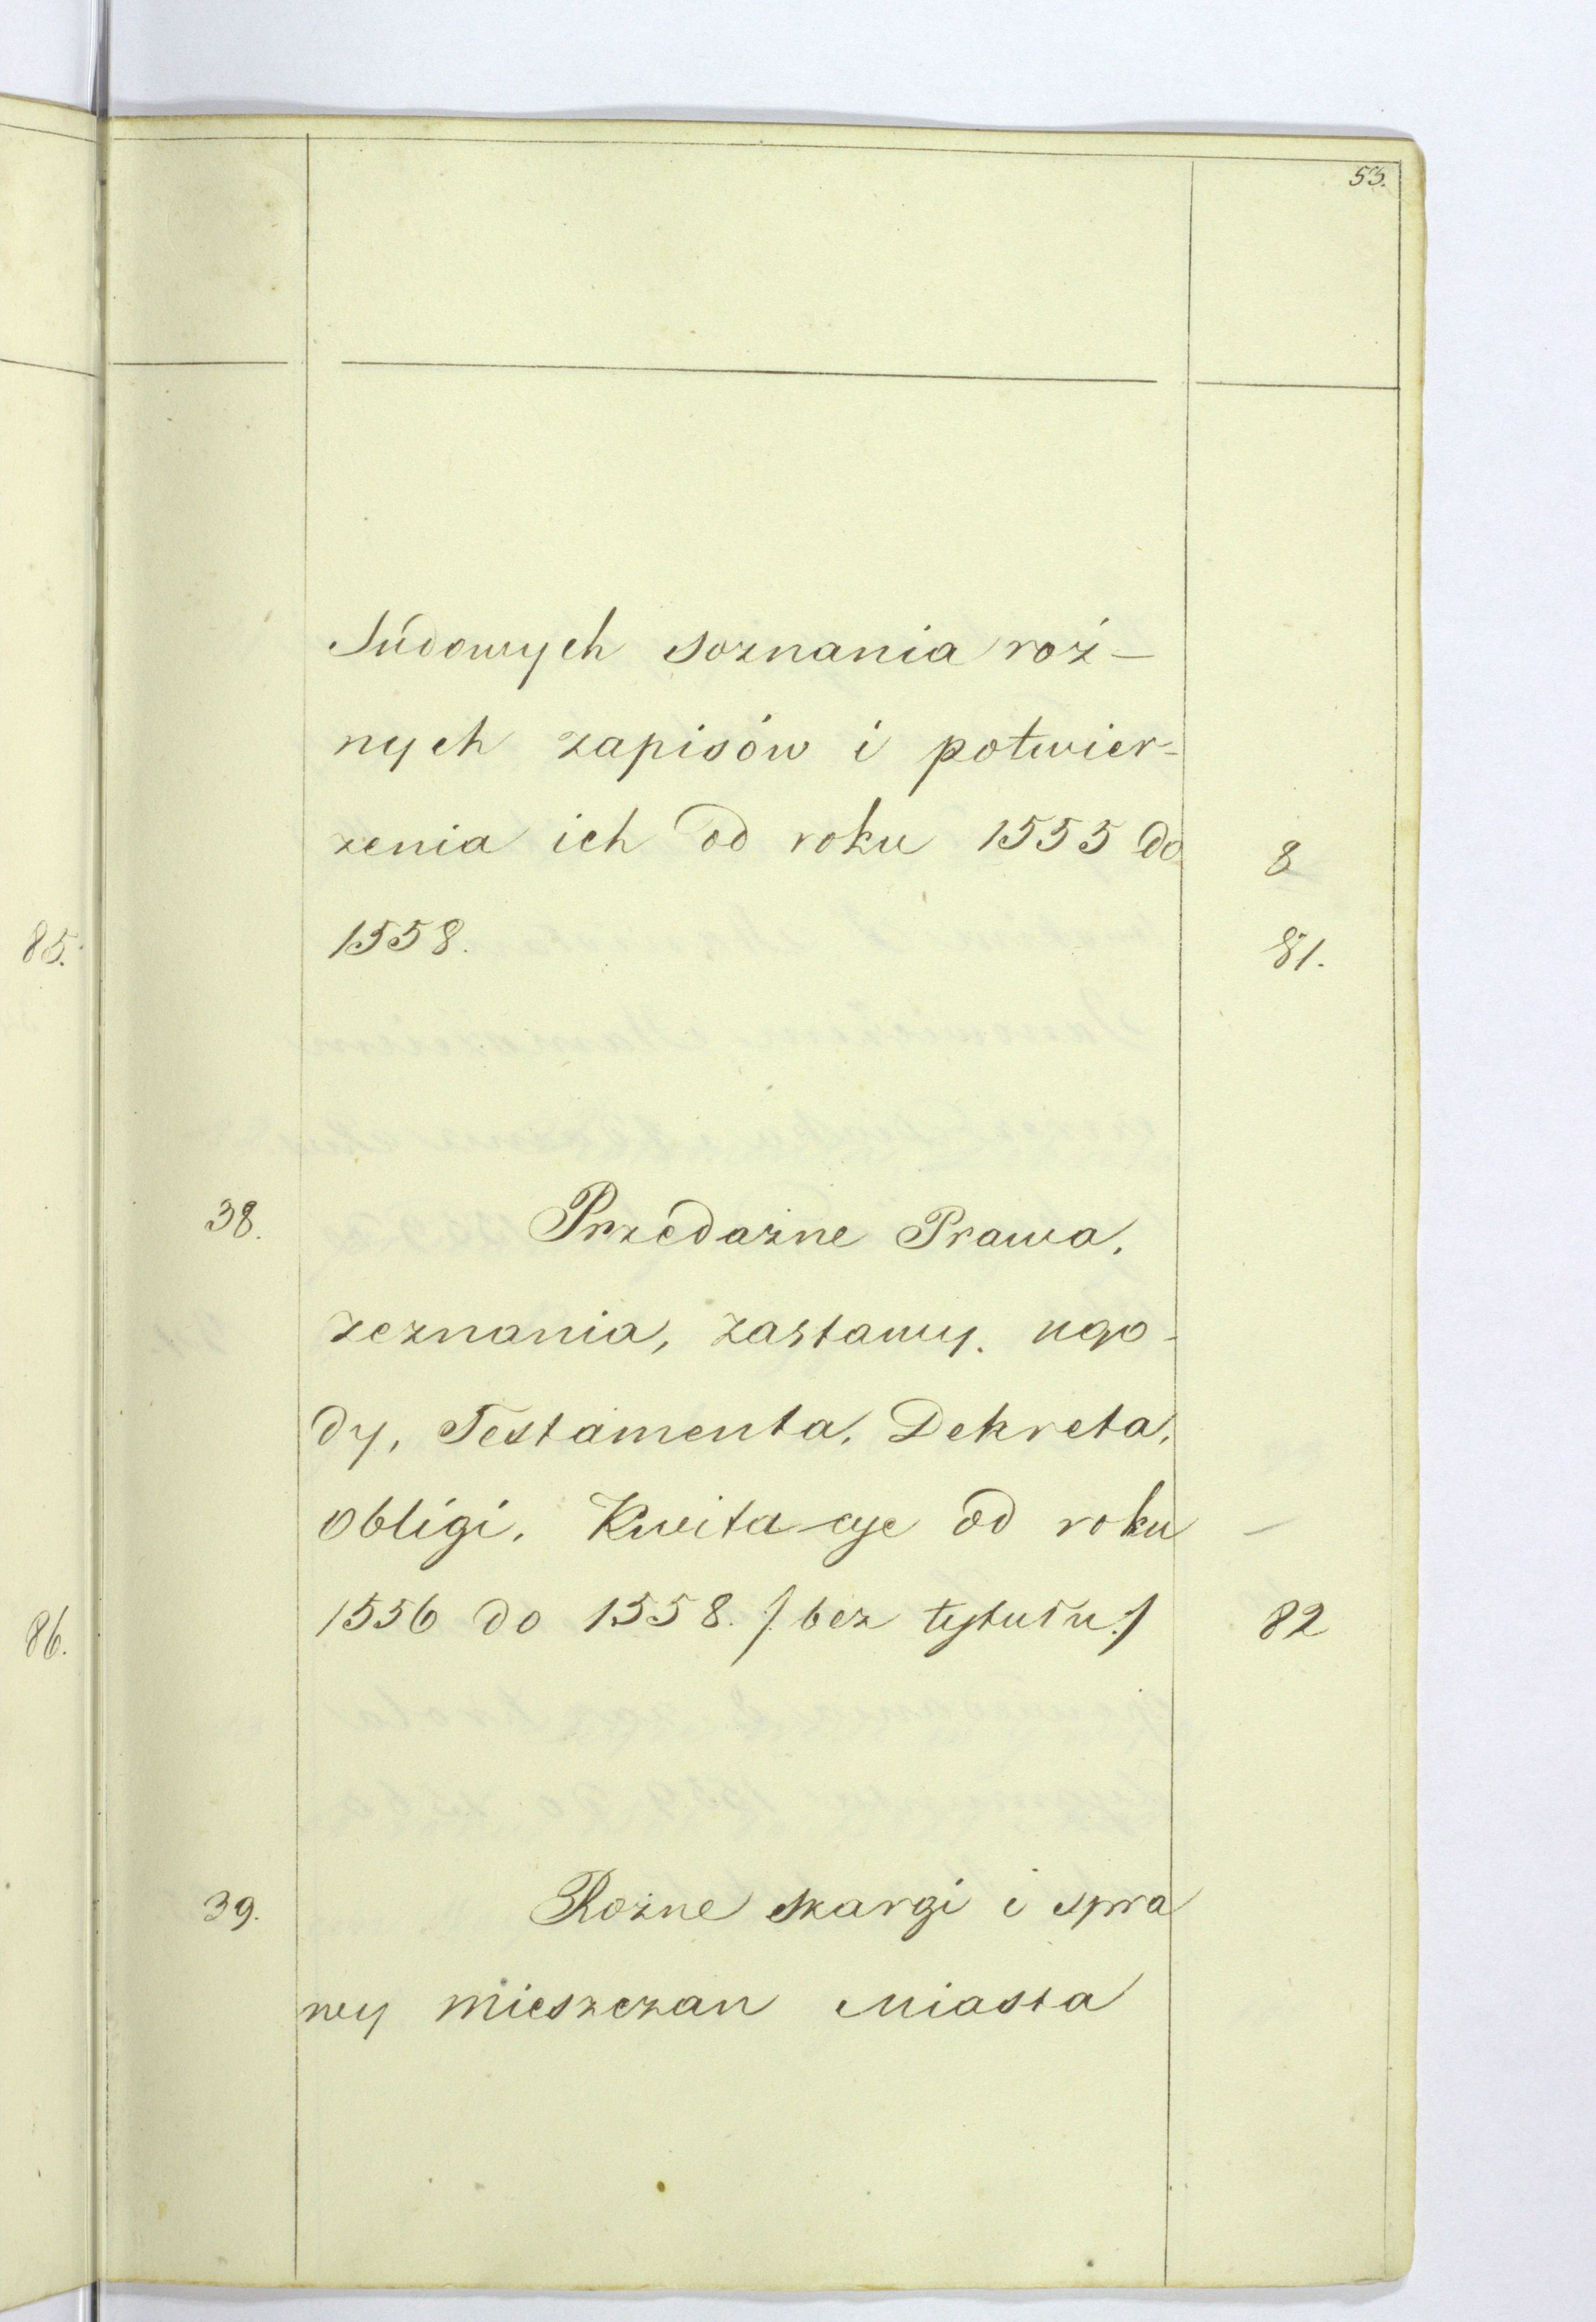 53.
Súdowych soznania roż-
nych zapisów i potwier-
zenia ich od roku 1555 do 8
1558. 81.
85.
38. Przedażne Prawa,
zeznania, zastawy, ugo-
dy, Testamenta, Dekreta,
obligi, Kwitacye od roku —
1556 do 1558. /: bez tytułu :/ 82
86.
39. Rożne skargi i spra
wy mieszczan miasta